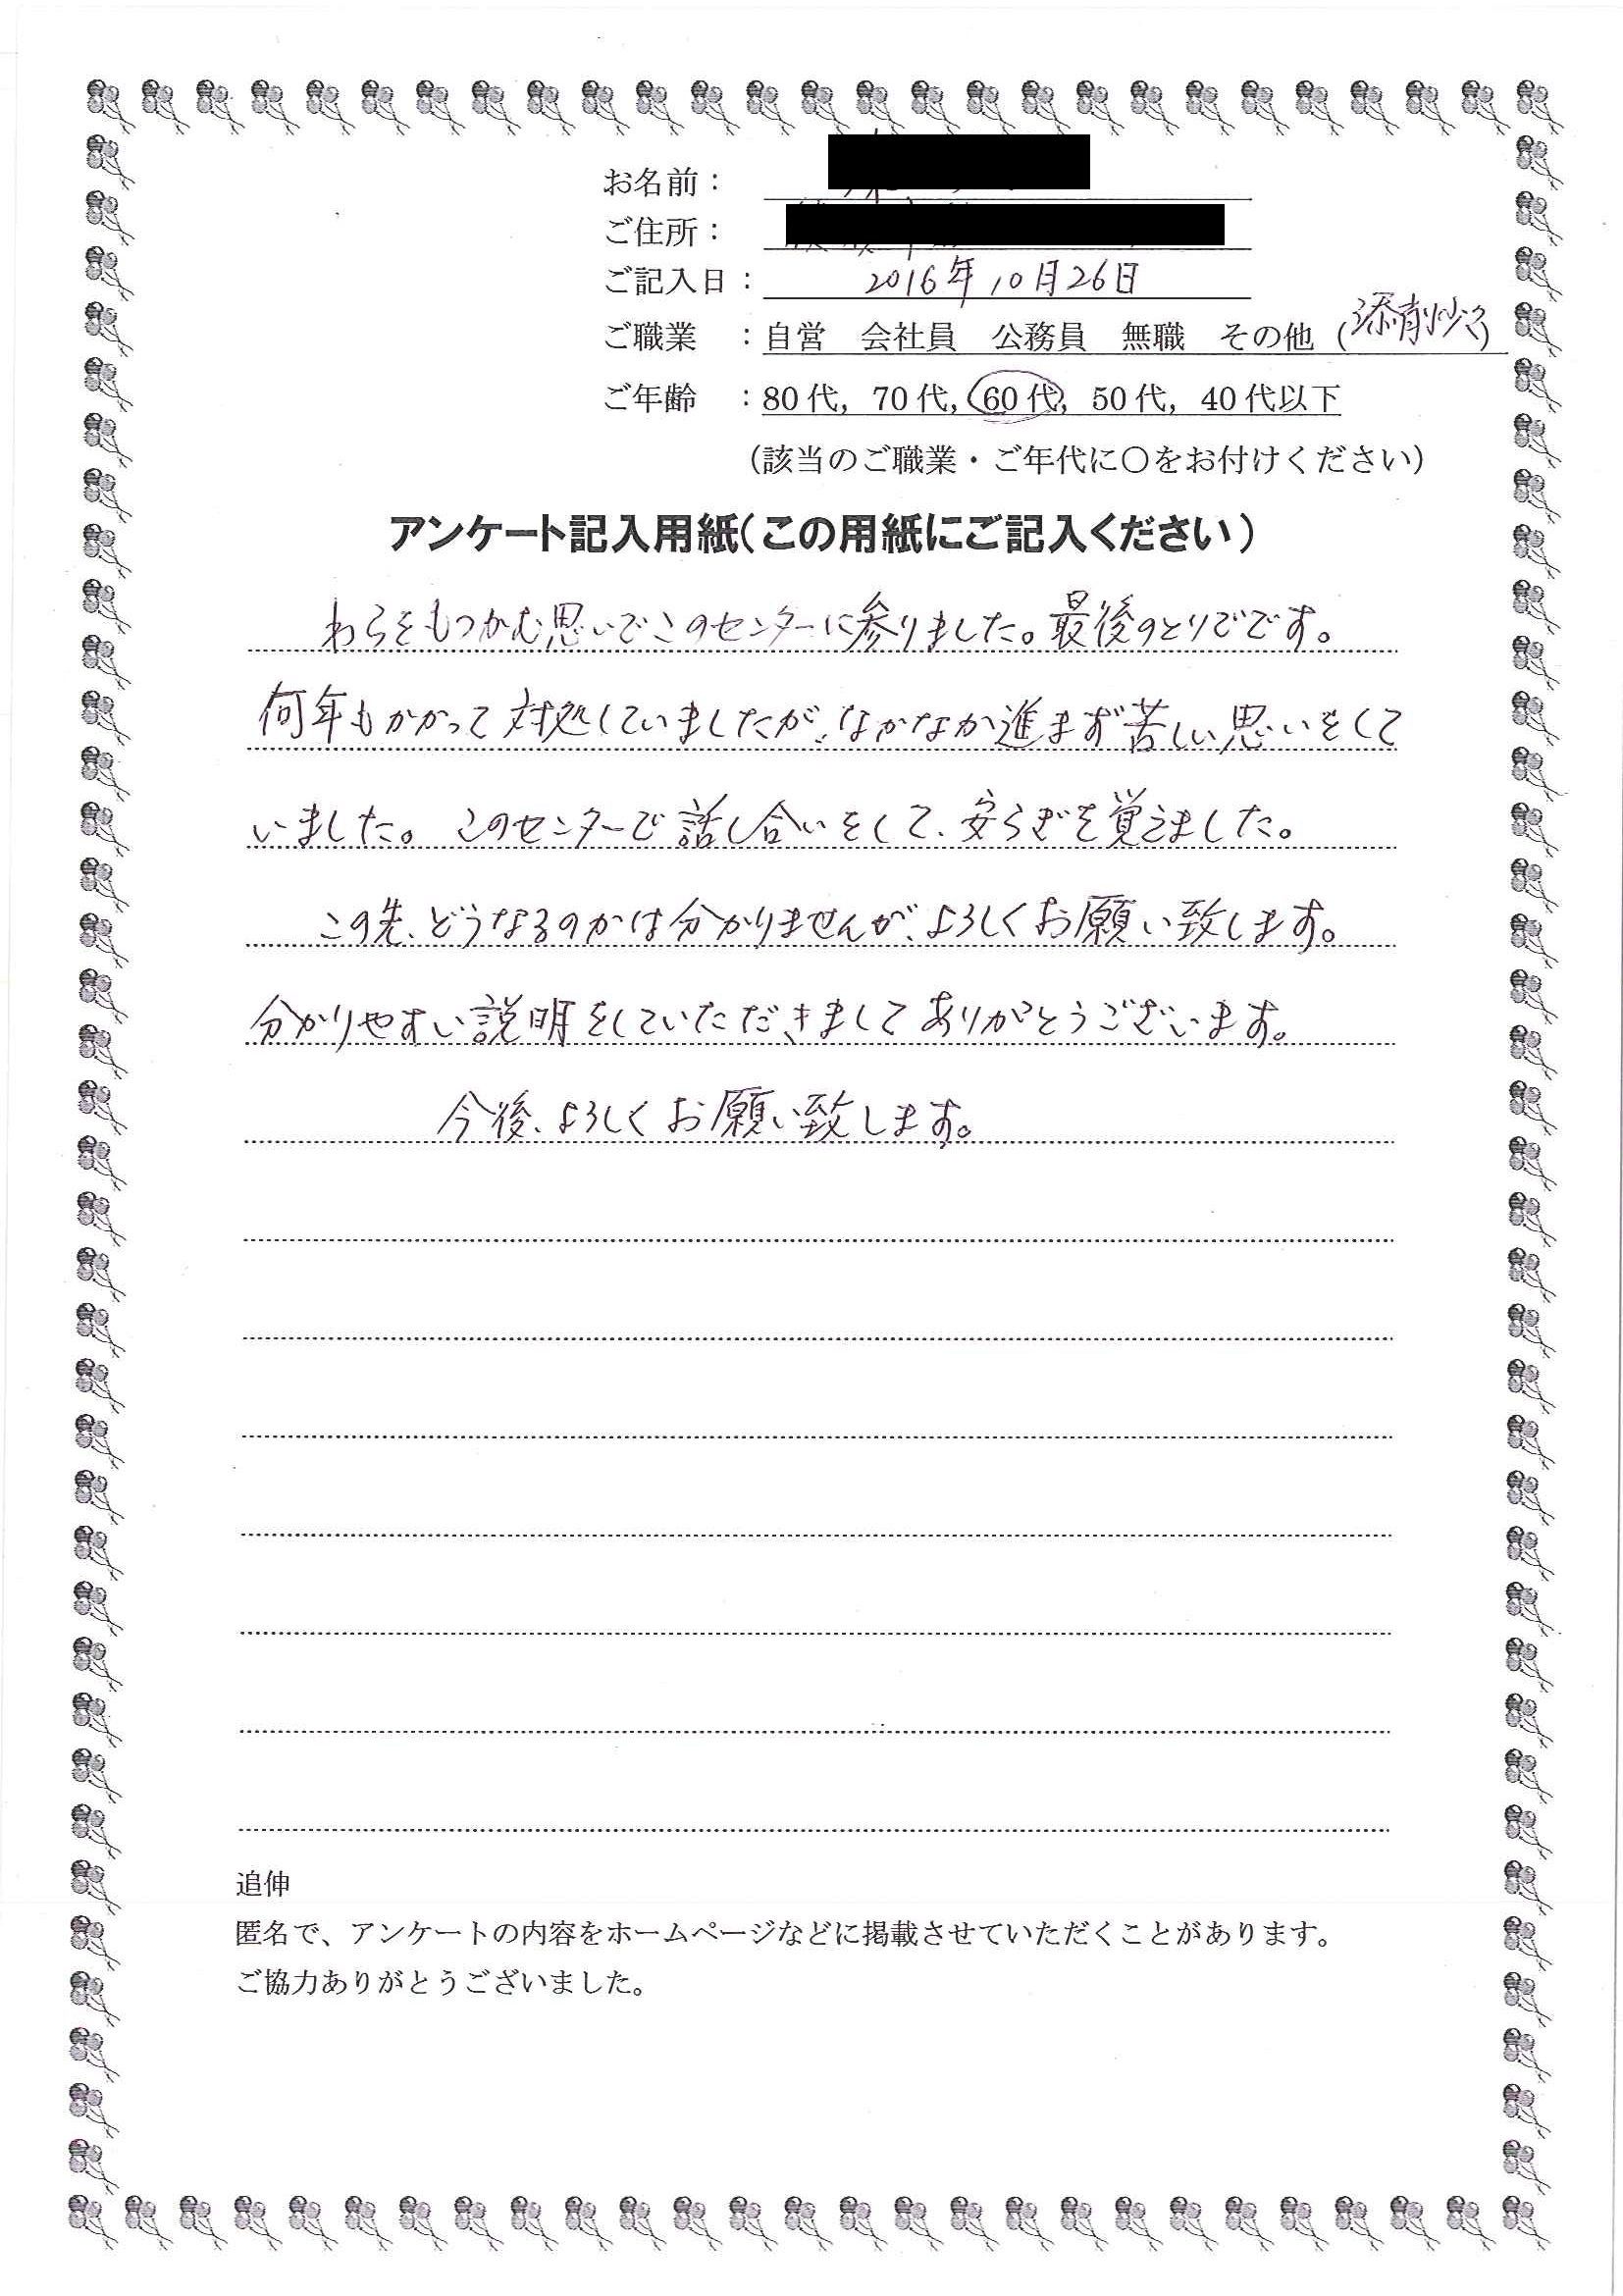 お名前：
ご住所：
ご記入日：2016年10月26日
ご職業　：自営　会社員　公務員　無職　その他（添削少々）
ご年齢　：80代，70代，60代，50代，40代以下
（該当のご職業・ご年代に〇をお付けください）
アンケート記入用紙（この用紙にご記入ください）
わらをもつかむ思いでこのセンターに参りました。最後のとりでです。
何年もかかって対処していましたが、なかなか進まず苦しい思いをして
いました。このセンターで話し合いをして、安らぎを覚えました。
この先、どうなるのかは分かりませんが、よろしくお願い致します。
分かりやすい説明をしていただきましてありがとうございます。
今後、よろしくお願い致します。
追伸
匿名で、アンケートの内容をホームページなどに掲載させていただくことがあります。
ご協力ありがとうございました。